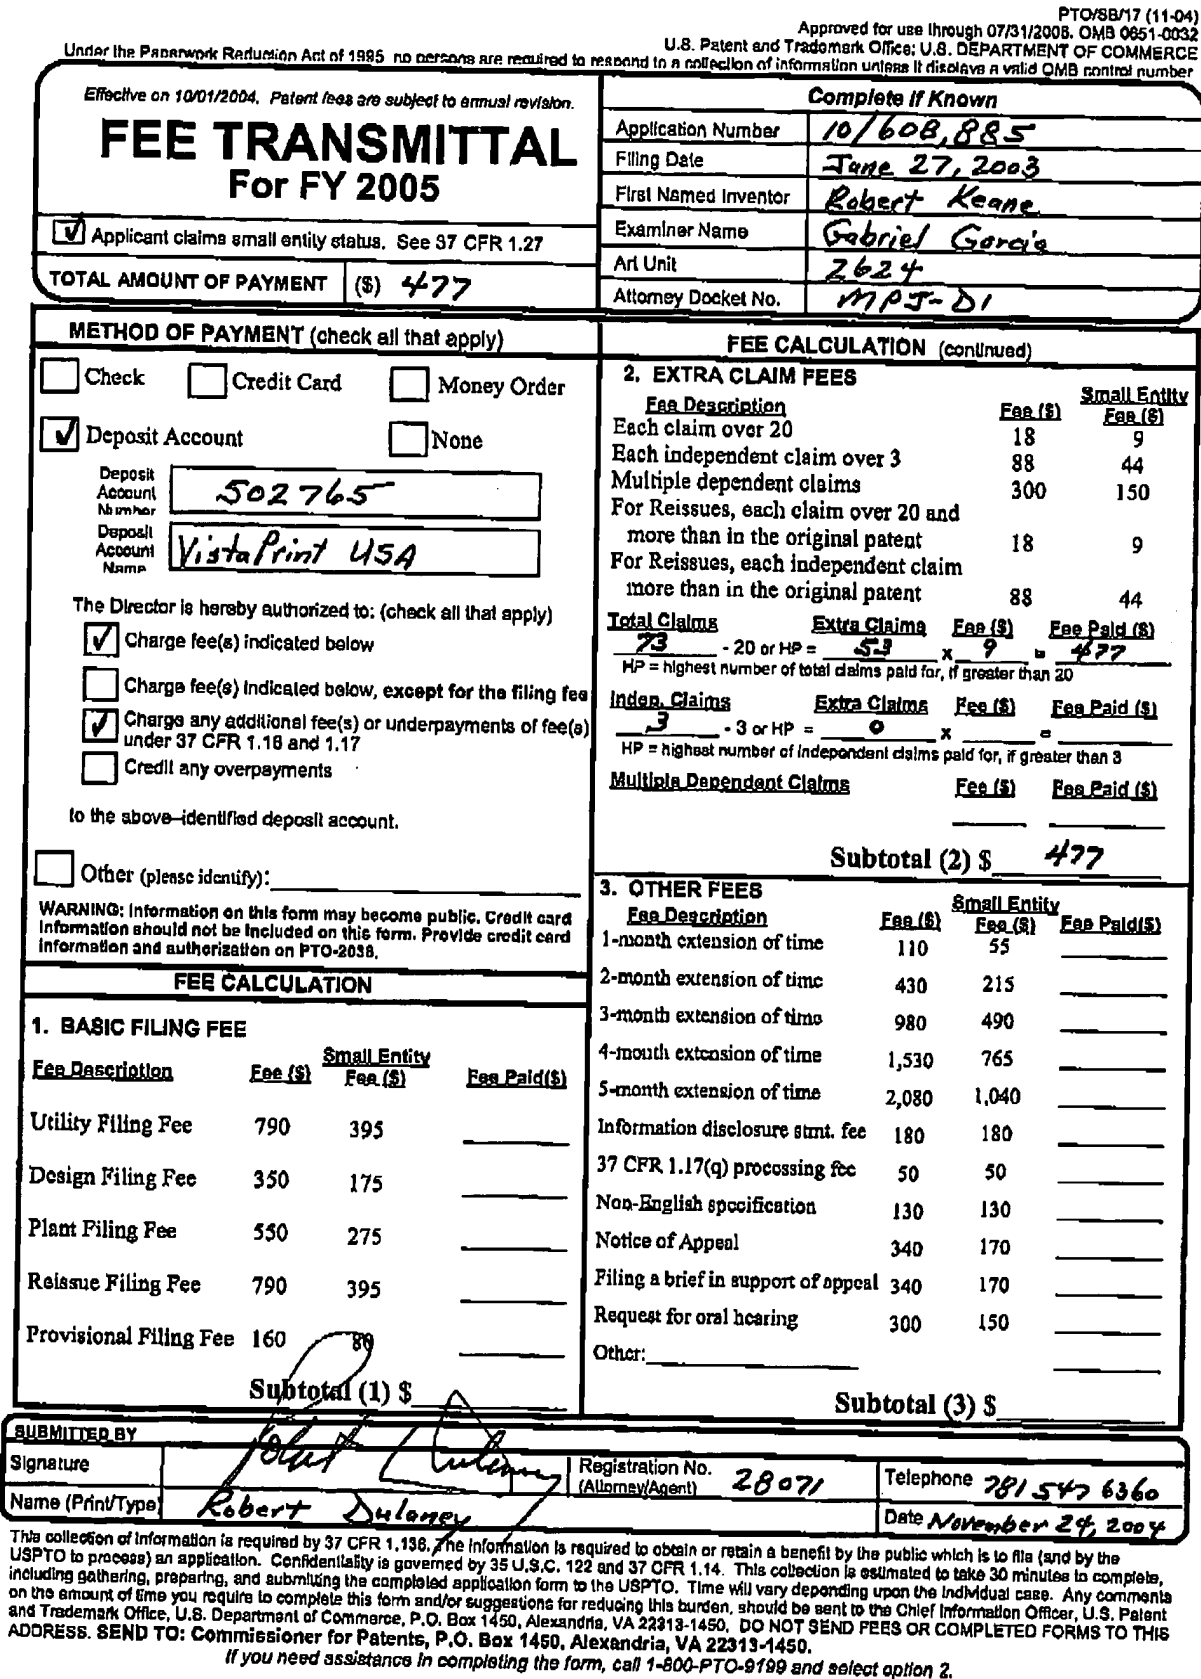 PTO/SB/17 (11-04)
Approved for use through 07/31/2006. OMB 0651-0032
U.S. Patent and Trademark Office; U.S. DEPARTMENT OF COMMERCE
Under the Paperwork Reduction Act of 1995 no persons are required to respond to a collection of information unless it displays a valid OMB control number
Effective on 10/01/2004. Patent fees are subject to annual revision.
FEE TRANSMITTAL
For FY 2005
☑ Applicant claims small entity status. See 37 CFR 1.27
TOTAL AMOUNT OF PAYMENT ($) 477
Complete if Known
Application Number 10/608,885
Filing Date June 27, 2003
First Named Inventor Robert Keane
Examiner Name Gabriel Garcia
Art Unit 2624
Attorney Docket No. MPJ-D1
METHOD OF PAYMENT (check all that apply)
☐ Check ☐ Credit Card ☐ Money Order
☑ Deposit Account ☐ None
Deposit Account Number 502765
Deposit Account Name VistaPrint USA
The Director is hereby authorized to: (check all that apply)
☑ Charge fee(s) indicated below
☐ Charge fee(s) indicated below, except for the filing fee
☑ Charge any additional fee(s) or underpayments of fee(s)
under 37 CFR 1.16 and 1.17
☐ Credit any overpayments
to the above-identified deposit account.
☐ Other (please identify):
WARNING: Information on this form may become public. Credit card
information should not be included on this form. Provide credit card
information and authorization on PTO-2038.
FEE CALCULATION
1. BASIC FILING FEE
Small Entity
Fee Description Fee ($) Fee ($) Fee Paid($)
Utility Filing Fee 790 395
Design Filing Fee 350 175
Plant Filing Fee 550 275
Reissue Filing Fee 790 395
Provisional Filing Fee 160 80
Subtotal (1) $
FEE CALCULATION (continued)
2. EXTRA CLAIM FEES
Small Entity
Fee Description Fee ($) Fee ($)
Each claim over 20 18 9
Each independent claim over 3 88 44
Multiple dependent claims 300 150
For Reissues, each claim over 20 and
more than in the original patent 18 9
For Reissues, each independent claim
more than in the original patent 88 44
Total Claims Extra Claims Fee ($) Fee Paid ($)
73 - 20 or HP = 53 x 9 = 477
HP = highest number of total claims paid for, if greater than 20
Indep. Claims Extra Claims Fee ($) Fee Paid ($)
3 - 3 or HP = 0 x =
HP = highest number of independent claims paid for, if greater than 3
Multiple Dependent Claims Fee ($) Fee Paid ($)
Subtotal (2) $ 477
3. OTHER FEES
Small Entity
Fee Description Fee ($) Fee ($) Fee Paid($)
1-month extension of time 110 55
2-month extension of time 430 215
3-month extension of time 980 490
4-month extension of time 1,530 765
5-month extension of time 2,080 1,040
Information disclosure stmt. fee 180 180
37 CFR 1.17(q) processing fee 50 50
Non-English specification 130 130
Notice of Appeal 340 170
Filing a brief in support of appeal 340 170
Request for oral hearing 300 150
Other:
Subtotal (3) $
SUBMITTED BY
Signature Robert Dulaney Registration No. (Attorney/Agent) 28071 Telephone 781 547 6360
Name (Print/Type) Robert Dulaney Date November 24, 2004
This collection of information is required by 37 CFR 1.136. The information is required to obtain or retain a benefit by the public which is to file (and by the
USPTO to process) an application. Confidentiality is governed by 35 U.S.C. 122 and 37 CFR 1.14. This collection is estimated to take 30 minutes to complete,
including gathering, preparing, and submitting the completed application form to the USPTO. Time will vary depending upon the individual case. Any comments
on the amount of time you require to complete this form and/or suggestions for reducing this burden, should be sent to the Chief Information Officer, U.S. Patent
and Trademark Office, U.S. Department of Commerce, P.O. Box 1450, Alexandria, VA 22313-1450. DO NOT SEND FEES OR COMPLETED FORMS TO THIS
ADDRESS. SEND TO: Commissioner for Patents, P.O. Box 1450, Alexandria, VA 22313-1450.
If you need assistance in completing the form, call 1-800-PTO-9199 and select option 2.